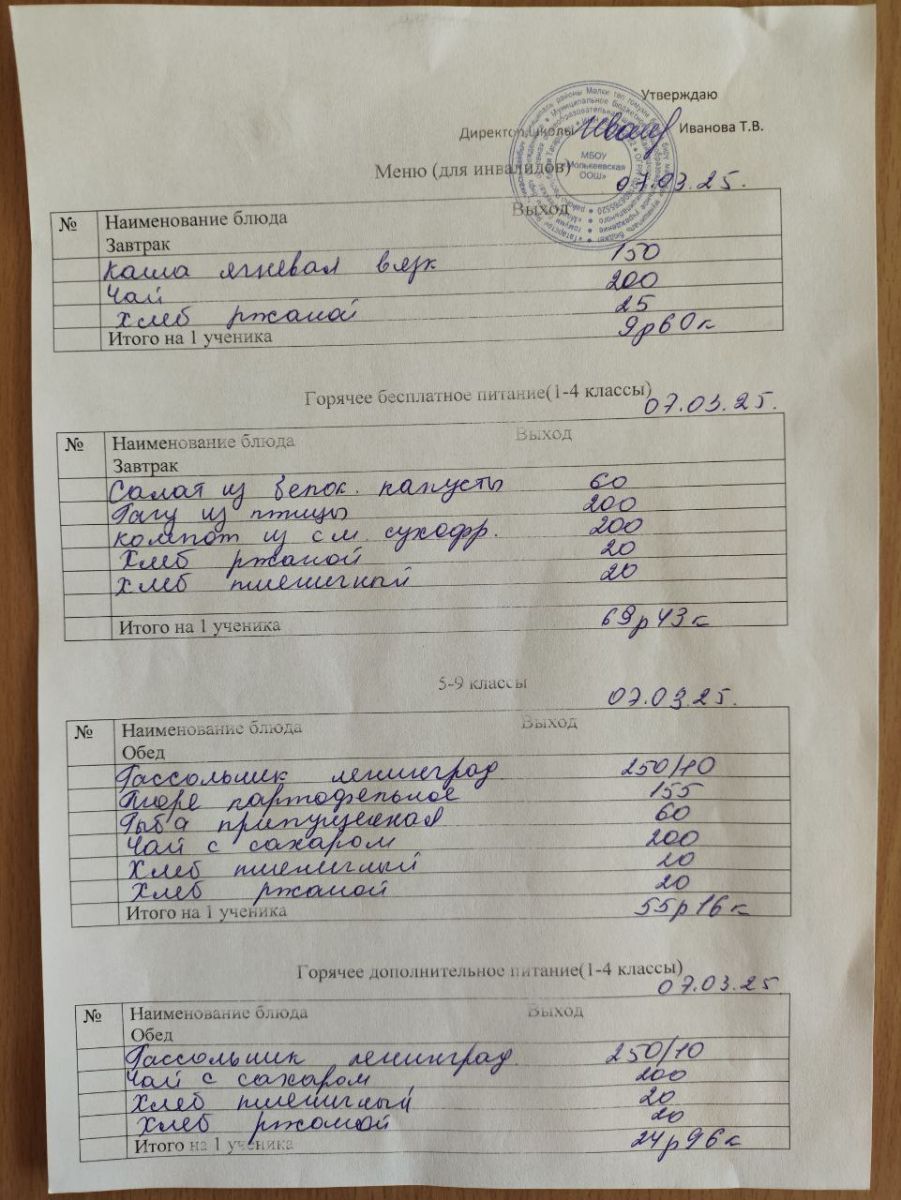 Утверждаю
Директор школы Иванова Т.В.
МБОУ
«Молькеевская
ООШ»
Меню (для инвалидов) 07.03.25.
№ Наименование блюда Выход
Завтрак
Каша ячневая вязк 150
Чай 200
Хлеб ржаной 25
Итого на 1 ученика 9р60к
Горячее бесплатное питание(1-4 классы)
07.03.25.
№ Наименование блюда Выход
Завтрак
Салат из белок. капусты 60
Рагу из птицы 200
Компот из см. сухофр. 200
Хлеб ржаной 20
Хлеб пшеничный 20
Итого на 1 ученика 69р43к
5-9 классы
07.03.25.
№ Наименование блюда Выход
Обед
Рассольник ленинград 250/10
Пюре картофельное 155
Рыба припущенная 60
Чай с сахаром 200
Хлеб пшеничный 20
Хлеб ржаной 20
Итого на 1 ученика 55р16к
Горячее дополнительное питание(1-4 классы)
07.03.25
№ Наименование блюда Выход
Обед
Рассольник ленинград. 250/10
Чай с сахаром 200
Хлеб пшеничный 20
Хлеб ржаной 20
Итого на 1 ученика 24р96к